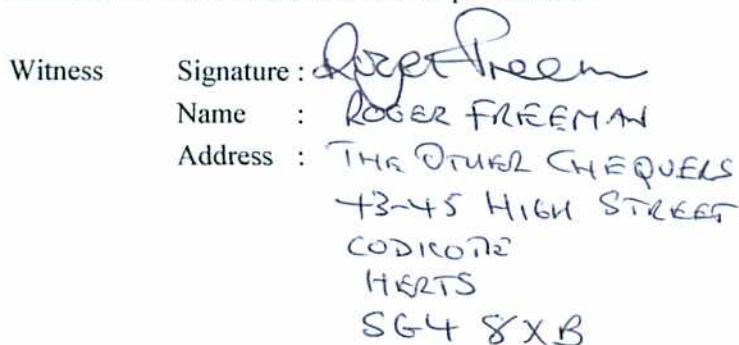 Witness Signature : Roger Freem
Name : ROGER FREEMAN
Address : THE OTHER CHEQUERS
43-45 HIGH STREET
CODICOTE
HERTS
SG4 8XB